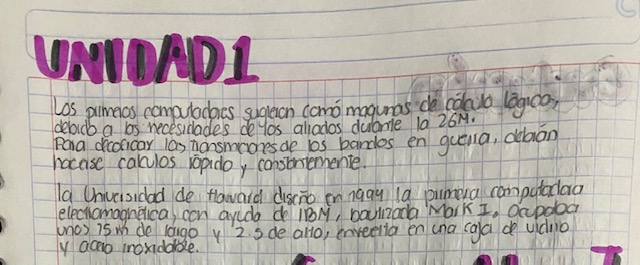 UNIDAD 1
Los primeros computadores sugieron comó maquinas de cálculo lógico,
debido a las necesidades de los aliados durante la 2GM.
Para decoficar las transmiciones de los bandos en guerra, debian
hacase calculos rápido y constantemente.
la Universidad de Howard diseño en 1994 la primera computadora
electromagnética, con ayuda de IBM, bautizada Mark I, ocupaba
unos 15 m de largo y 2.5 de alto, envuelta en una caja de vidrio
y acero inoxidable.